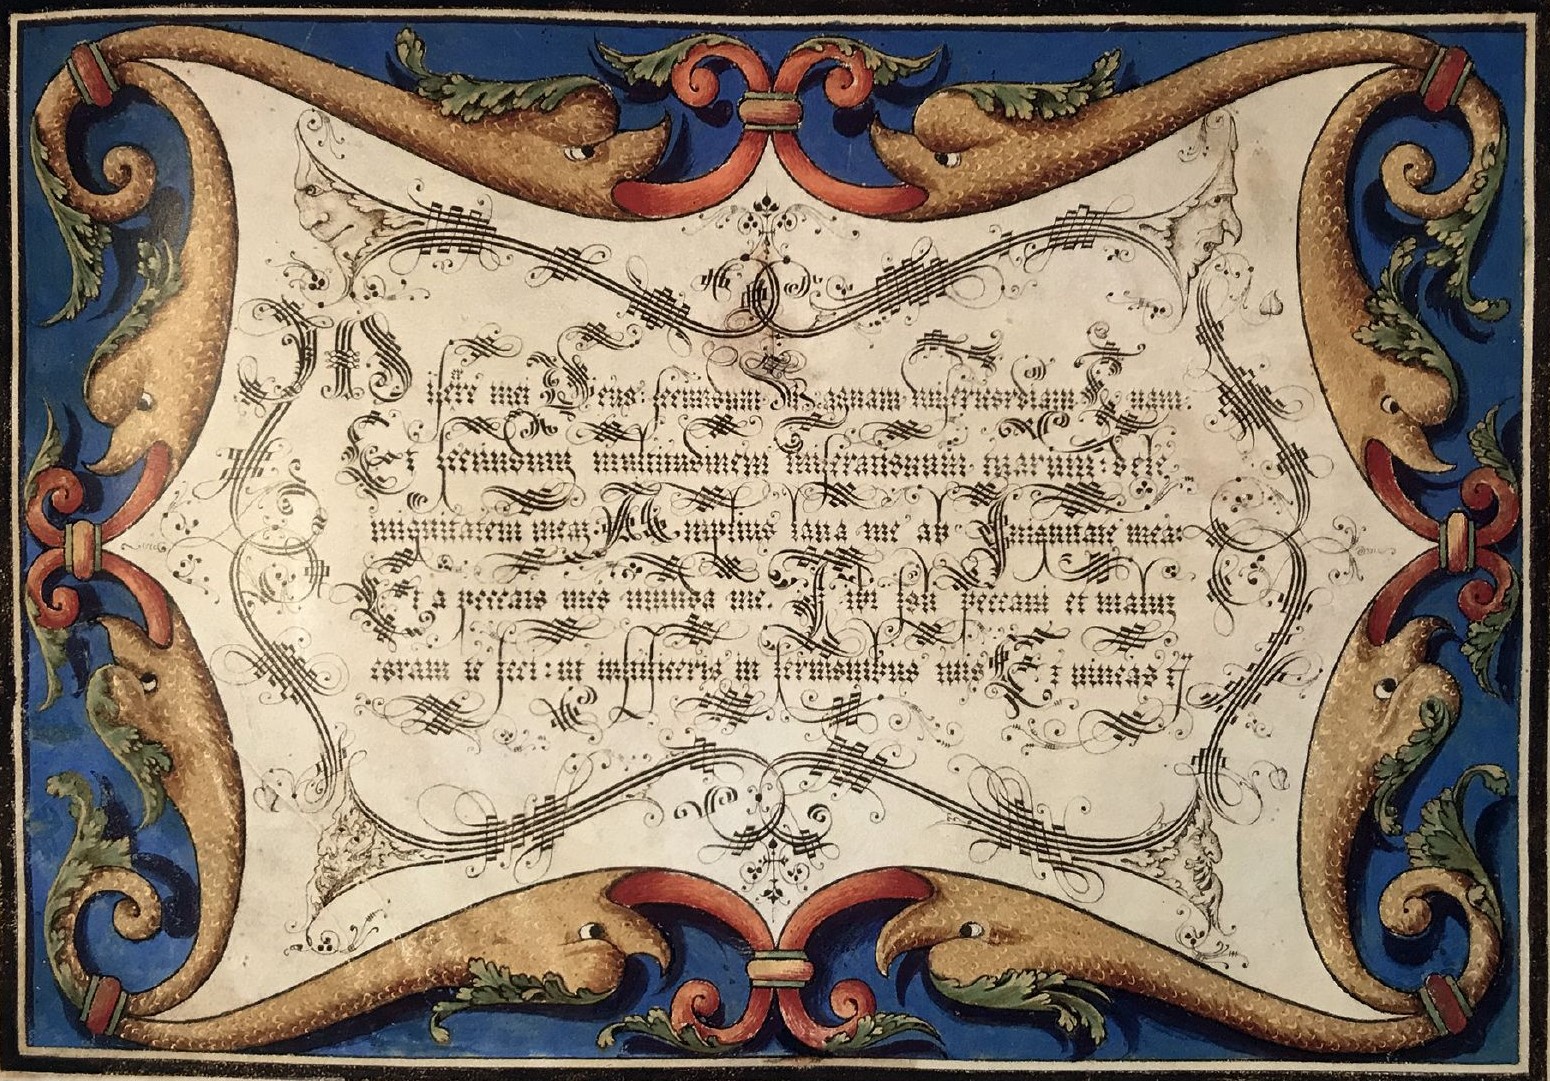 Miserere mei Deus: secundum Magnam misericordiam tuam:
Et secundum multitudinem miserationum tuarum: dele
iniquitatem meam. Amplius lava me ab Iniquitate mea:
Et a peccato meo munda me. Tibi soli peccavi et malum
coram te feci: ut iustificeris in sermonibus tuis Et vincas